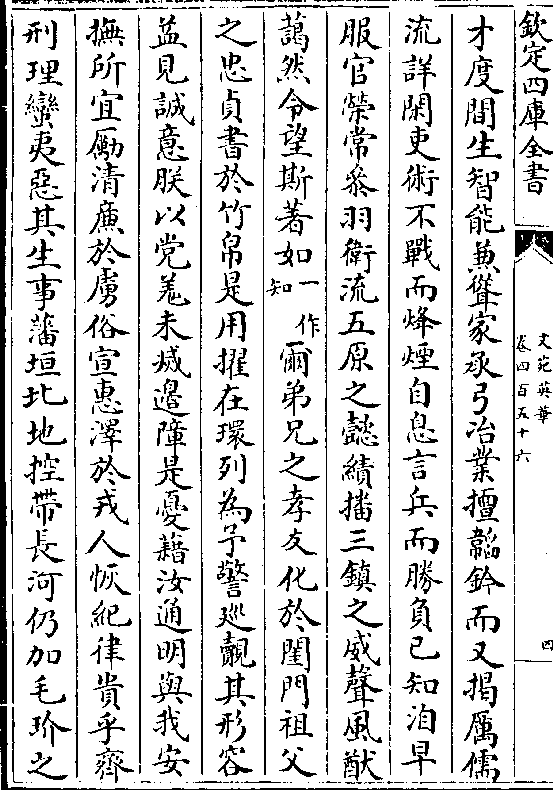 欽定四庫全書
文苑英華
卷四百五十六
四
才度間生智能兼聳家承弓冶業擅韜鈐而又揭厲儒
流詳閑吏術不戰而烽煙自息言兵而勝負已知洎早
服官榮常叅羽衛流五原之懿績播三鎮之威聲風猷
藹然令望斯著如一作知爾弟兄之孝友化於閨門祖父
之忠貞書於竹帛是用擢在環列為予警廵覿其形容
益見誠意朕以党羗未㓕邉障是憂藉汝通明與我安
撫所宜勵清亷於虜俗宣惠澤於戎人恢紀律貴乎齊
刑理蠻夷惡其生事藩垣北地控帶長河仍加毛玠之